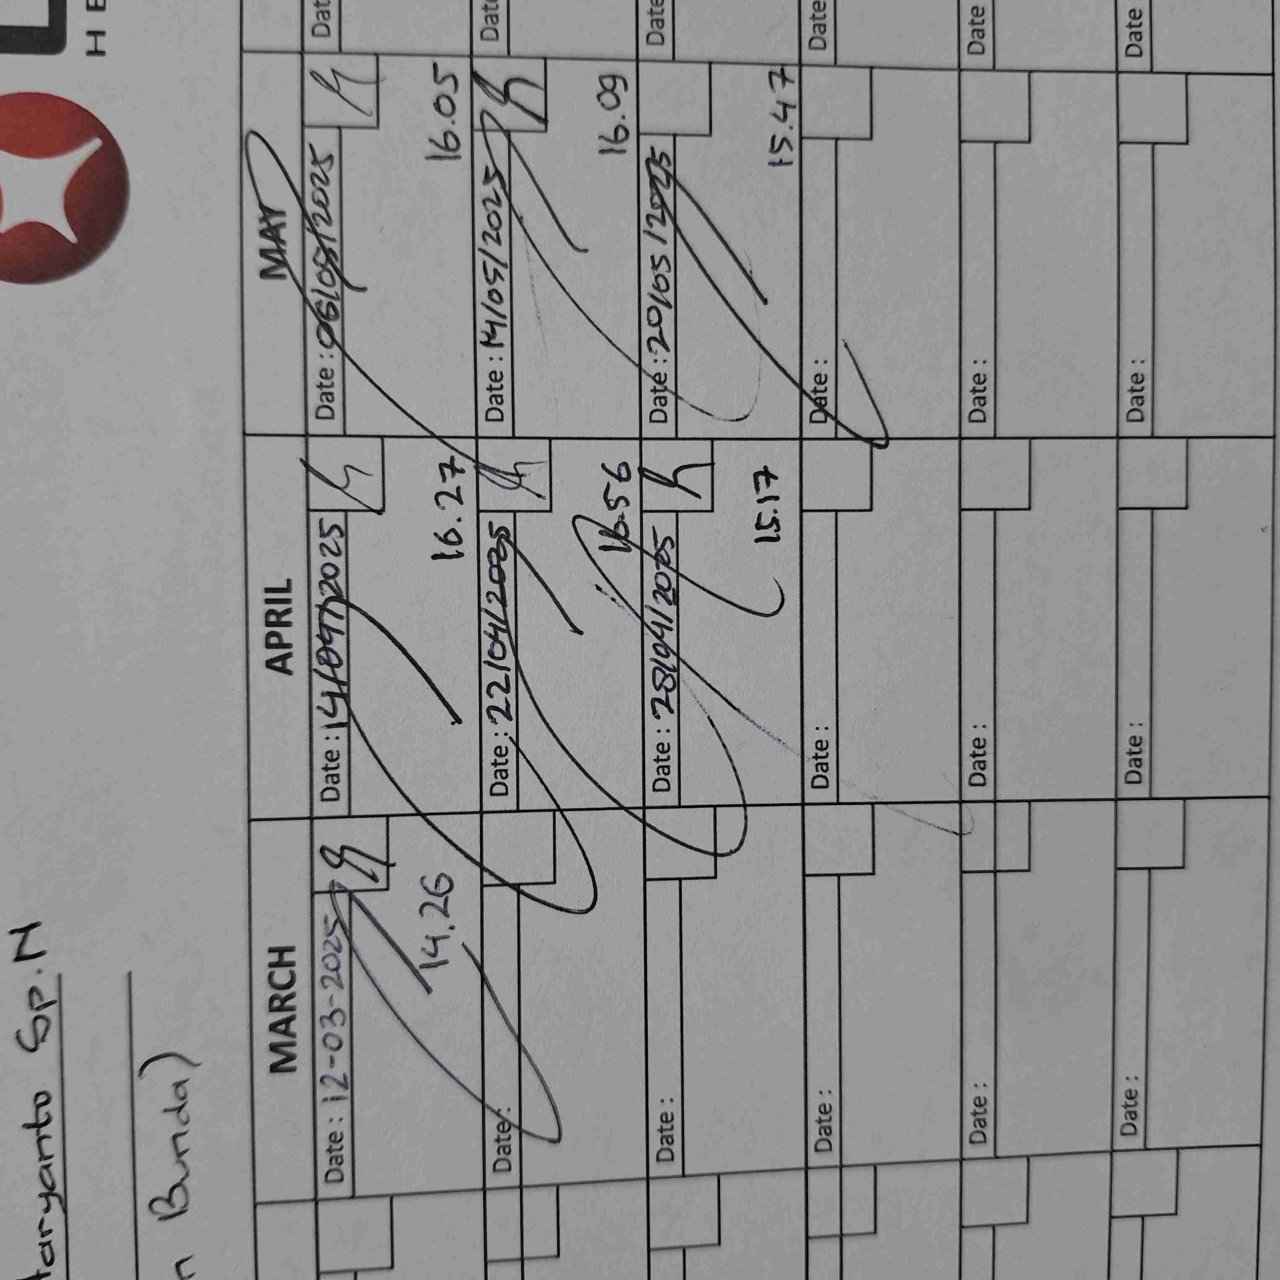 H E
taryanto Sp.N
n Bunda)
MARCH
APRIL
MAY
Date : 12-03-2025
14.26
Date : 14/04/2025
16.27
Date : 06/05/2025
16.05
Dat
Date :
Date : 22/04/2025
Date : 14/05/2025
16.09
Dat
Date :
Date : 28/04/2025
15.17
Date : 20/05/2025
15.47
Date
Date :
Date :
Date :
Date
Date :
Date :
Date :
Date
Date :
Date :
Date :
Date